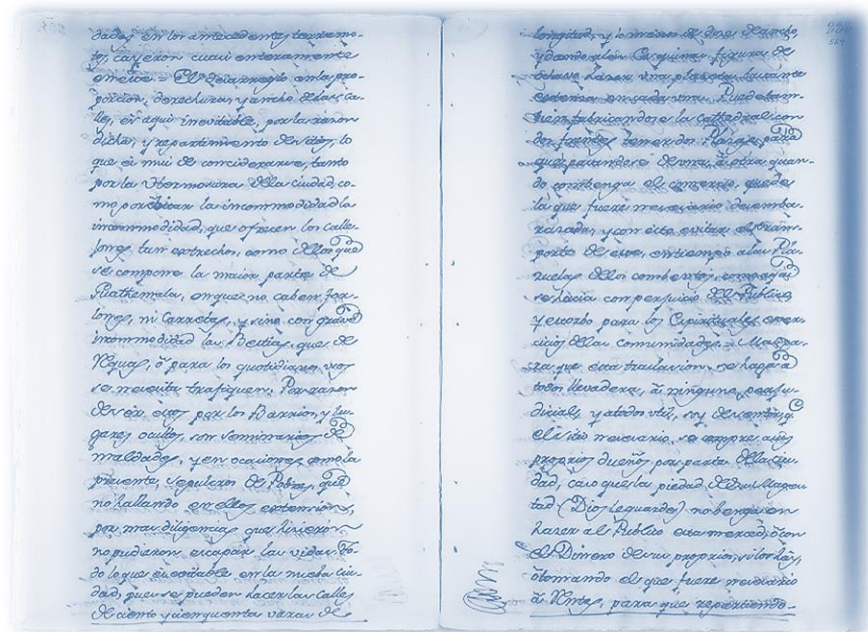 dades en los antecedentes terremo-
tos, cayeron cuasi enteramente
El desarreglo en las pro-
porcion, derechuras, y ancho de las ca-
lles, es aqui inevitable, por la razon
dicha, y repartimiento de sitios, lo
que es mui de considerarse, tanto
por la hermosura de la ciudad, co-
mo por la incommodidad
incommodidad, que ofrecen los calle-
jones tan estrechos, como de los que
se compone la maior parte de
Guathemala, en que no caben for-
lones, ni Carretas, y sino con grave
incommodidad las Bestias, que de
Requas, ô para los quotidianos usos
se necesita trafiquen. Por razon
de ser estos por los Barrios y lu-
gares ocultos, son seminarios de
maldades, y en ocasiones, como la
presente, sepulcros de Pobres, que
no hallando en ellos extension,
por mas diligencias que hisieron
no pudieron escapar las vidas. To-
do lo que es evitable en la nueba ciu-
dad, que se pueden hacer las calles
de ciento y cinquenta varas de
longitud, y lo menos de dies de ancho,
y dando a las Esquinas figura de
octavo haser una plasuela bastante
extensa en cada una. Puede tam-
bien fabricandose la Cathedral con
dos frentes tener dos Plazas, para
que pasandose de una, â otra quan-
do contenga el comersio, quede
la que fuere necesario desemba-
rasada, y con esto evitar el trans-
porte de este, en tiempo a las Pla-
zuelas de los combentos, como aqui
se hacia con perjuicio del Publico,
y estorbo para los Espirituales exer-
cicios de las comunidades.
que esta traslasion se haga â
todos llevadera, â ninguno perju-
dicial, y a todos util, soy de sentir, q
el sitio necesario, se compre a sus
proprios dueños por parte de la ciu-
dad, caso que la piedad de su Mages-
tad (Dios le guarde) no benga en
haser al Publico esta merced, ô con
el Dinero de su proprios, si los hay,
ô tomando el que fuere necesario
â Reditos, para que repartiendo-